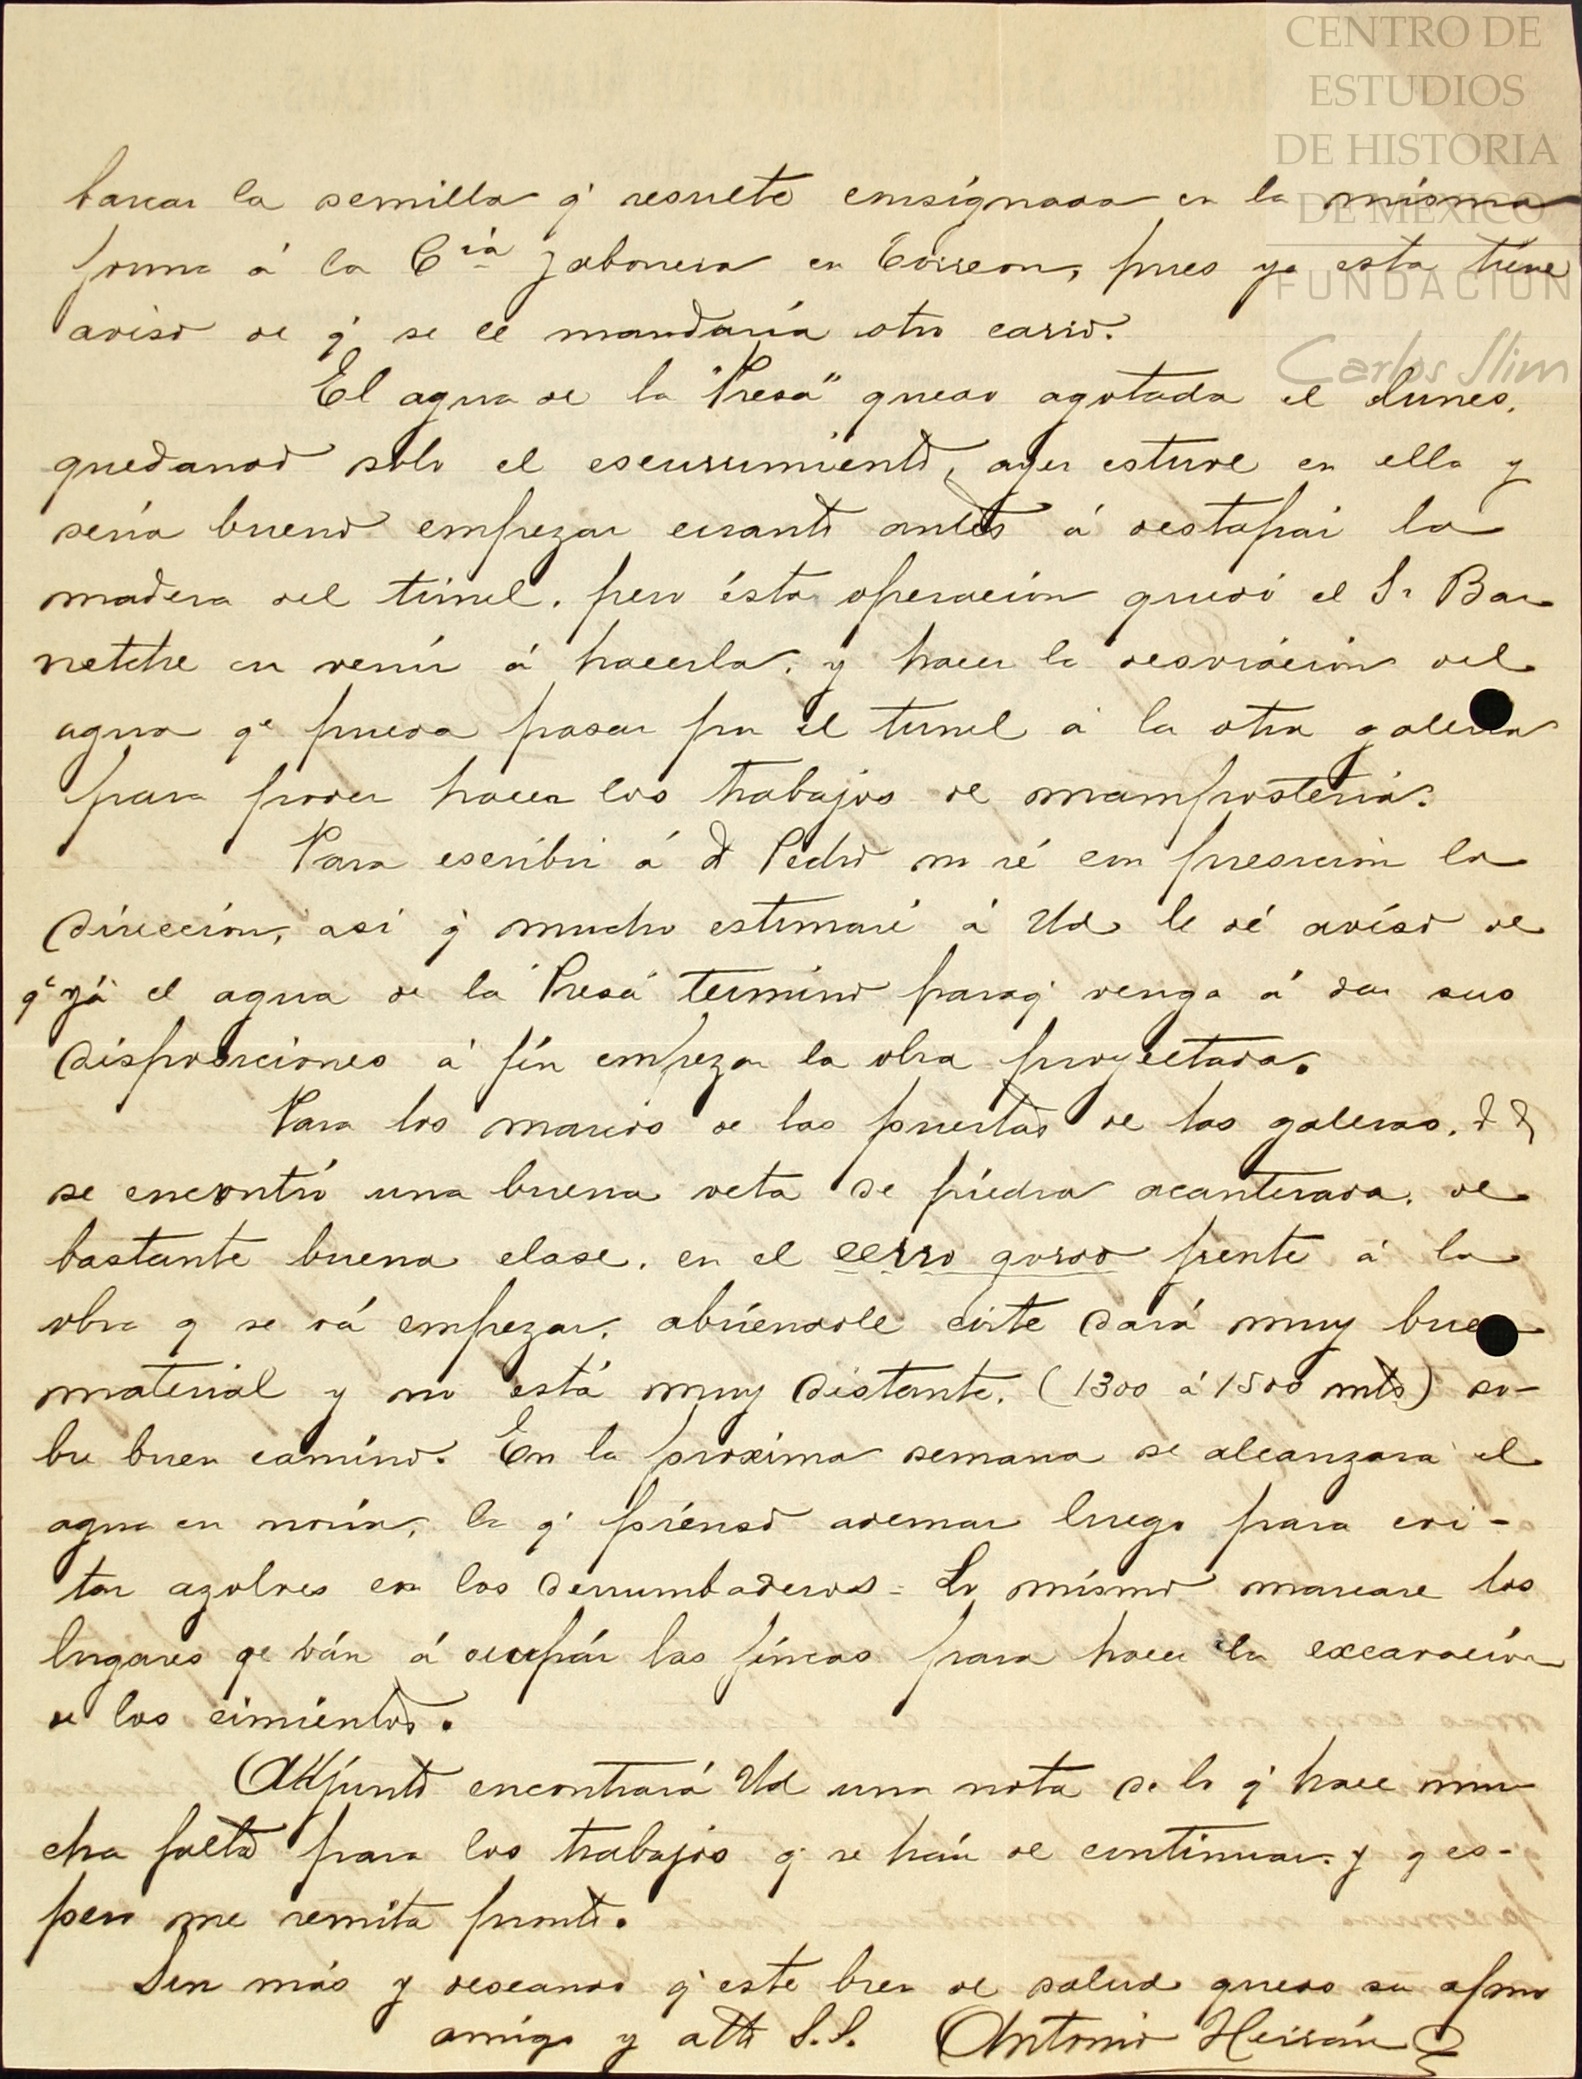 CENTRO DE
ESTUDIOS
DE HISTORIA
DE MÉXICO
FUNDACIÓN
Carlos Slim
barcar la semilla q' resulte consignada en la misma
forma á la Cía Jabonera en Torreon, pues ya esta tiene
aviso de q' se le mandaría otro carro.
El agua de la "Presa" quedo agotada el Lunes,
quedando solo el escurrimiento, ayer estuve en ella y
sería bueno empezar cuanto antes á destapar la
madera del túnel. pero ésta operación quedó el Sr Bar
netche en venir á hacerla. y hacer la desviación del
agua qe pueda pasar por el tunel á la otra galera
para poder hacer los trabajos de mampostería.
Para escribir á d Pedro no sé con presicion la
dirección, asi q' mucho estimaré á Ud le dé aviso de
q' yá el agua de la "Presa" termino para q' venga á dar sus
disposiciones á fín empezar la obra proyectada.
Para los marcos de las puertas de las galeras,
se encontró una buena veta de piedra acanterada, de
bastante buena clase. en el cerro gordo frente á la
obra q se vá empezar. abriéndole corte dará muy buen
material y no está muy distante. (1300 á 1500 mts) so-
bre buen camino. En la proxima semana se alcanzará el
agua en noria, la q' piénso ademar luego para evi-
tar azolves en los derrumbaderos = Lo mismo marcare los
lugares qe ván á ocupár las fincas para hacer la excavación
de los cimientos.
Adjunto encontrará Ud una nota de lo q' hace mu
cha falta para los trabajos q' se hán de continuar y q es-
pero me remita pronto.
Sin más y deseando q' este bien de salud quedo su afmo
amigo y atto S.S. Antonio Hernán